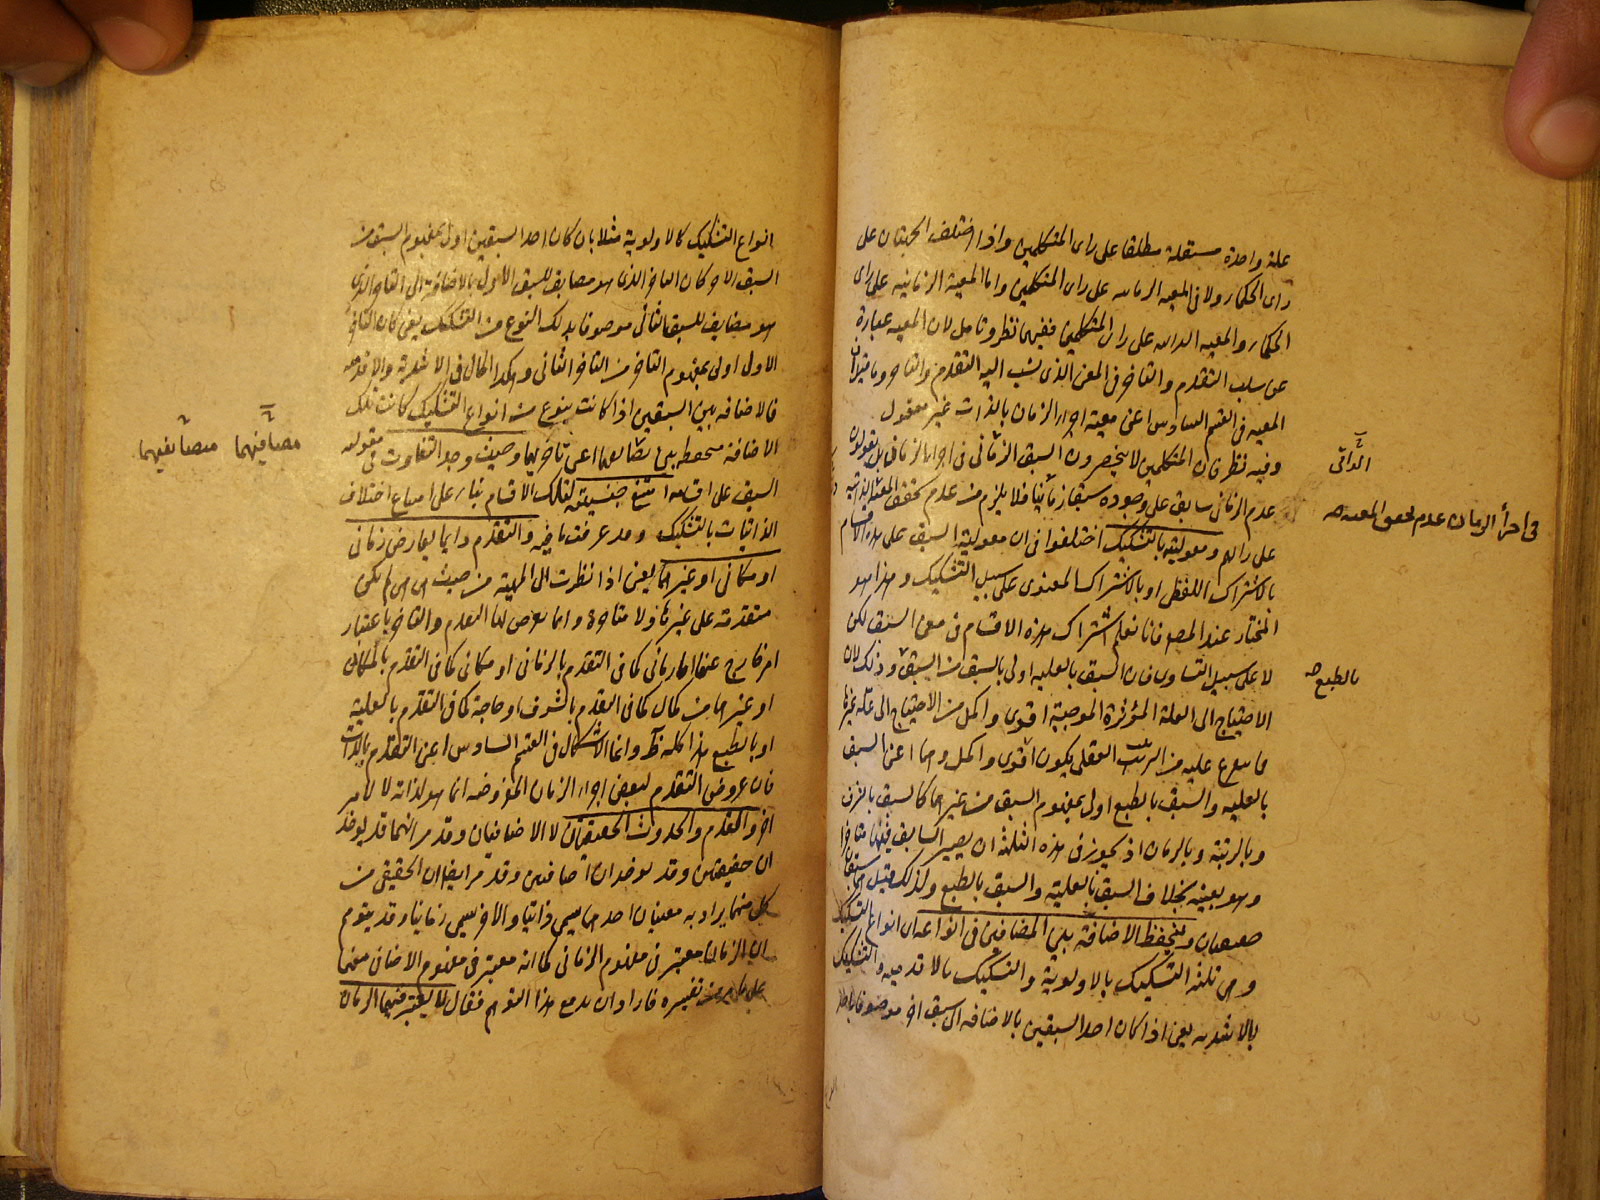 علة واحدة مستقلة مطلقا على راى المتكلمين واذا اختلف الجهتان على
راى الحكماء ولا فى المعيه الزمانيه على راى المتكلمين واما المعية الزمانيه على راى
الحكماء والمعيه الذاتيه على راى المتكلمين ففيهما نظر وتامل لان المعيه عبارة
عن سلب التقدم والتاخر فى المعنى الذى نسب اليه التقدم والتاخر وما يقال ان
المعيه فى القسم السادس اعنى معية اجزاء الزمان بالذات غير معقول
وفيه نظر فان المتكلمين لا يحصرون السبق الزمانى فى اجزاء الزمان بل يقولون
الذاتى
عدم الزمان سابق على وجوده سبقا زمانيا فلا يلزم من عدم تحقق المعية الذاتيه
فى اجزأ الزمان عدم تحقق المعيه صح
على رايهم ومقوليته بالتشكيك اختلفوا فى ان مقولية السبق على هذه الاقسام
بالاشتراك اللفظى او بالاشتراك المعنوى على سبيل التشكيك وهذا هو
المختار عند المصنف فانا نعلم اشتراك هذه الاقسام فى معنى السبق لكن
لا على سبيل التساوى فان السبق بالعليه اولى بالسبق من السبق وذلك لان
بالطبع صح
الاحتياج الى العلة المؤثرة الموجبة اقوى واكمل من الاحتياج الى علة غيرها
فما يتفرع عليه من الترتب العقلى يكون اقوى واكمل وهما اعنى السبق
بالعليه والسبق بالطبع اولى بمفهوم السبق من غيرهما كالسبق بالشرف
وبالرتبة وبالزمان اذ يجوز فى هذه الثلثة ان يصير السابق فيها متاخرا
وهو بعينه بخلاف السبق بالعليه والسبق بالطبع ولذلك قيل هما سبقان
حقيقيان وينحفظ الاضافة بين المضافين فى انواعه اى انواع التشكيك
وهى ثلثة التشكيك بالاولوية والتشكيك بالاقدميه والتشكيك
بالاشديه يعنى اذا كان احد السبقين بالاضافه الى سبق اخر موصوفا باحد
انواع التشكيك كالاولوية مثلا بان كان احد السبقين اولى بمفهوم السبق من
السبق الاخر كان التاخر الذى هو مضايف للسبق الاول بالاضافة الى التاخر الذى
هو مضايف للسبق الثانى موصوفا بذلك النوع من التشكيك يعنى كان التاخر
الاول اولى بمفهوم التاخر من التاخر الثانى وهكذا الحال فى الاشدية والاقدميه
فالاضافه بين السبقين اذا كانت بنوع من انواع التشكيك كانت تلك
الاضافة منحفظه بين مضايفهما اعنى تاخريهما وحيث وجد التفاوت فى مقوليه
مضايفيهما متضايفيهما
السبق على اقسامه امتنع جنسيته لتلك الاقسام بناء على امتناع اختلاف
الذاتيات بالتشكيك وقد عرفت ما فيه والتقدم دايما لعارض زمانى
او مكانى او غيرهما يعنى اذا نظرت الى المهية من حيث هى هى لم تكن
متقدمة على غيرها ولا متاخرة وانما يعرض لها التقدم والتاخر باعتبار
امر خارج عنها اما زمانى كما فى التقدم بالزمانى او مكانى كما فى التقدم بالمكان
او غيرهما من كمال كما فى التقدم بالشرف او حاجة كما فى التقدم بالعلية
او بالطبع هذا كله ظ وانما الاشكال فى القسم السادس اعنى التقدم بالذات
فان عروض التقدم لبعض اجزاء الزمان المفروضه انما هو لذاته لا لامر
اخر والقدم والحدوث الحقيقيان لا الاضافيان وقد مر انهما قد يوخذ
ان حقيقتين وقد يوخذان اضافيين وقد مر ايضا ان الحقيقى من
كل منهما يراد به معنيان احدهما يسمى ذاتيا والاخر يسمى زمانيا وقد يتوهم
ان الزمان معتبر فى مفهوم الزمانى كما انه معتبر فى مفهوم الاضافى منهما
على ما مر من تفسيره فاراد ان يدفع هذا التوهم فقال لا يعتبر فيهما الزمان